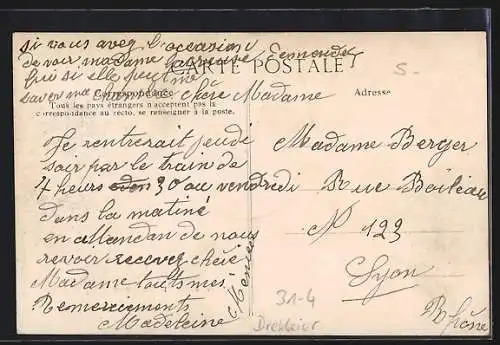 si vous avez l'occasion
de voir madame
lui si elle peut me
laver ma chemise chère Madame
CARTE POSTALE
Correspondance
Tous les pays étrangers n'acceptent pas la
correspondance au recto, se renseigner à la poste.
Adresse
S-
Je rentrerait jeudi
soir par le train de
4 heures 30 ou vendredi
dans la matiné
en attendan de nous
revoir recevez chère
Madame touts mes
Remerciements
Madeleine
Madame Berger
Rue Boileau
N° 123
Lyon
Rhône
31-4